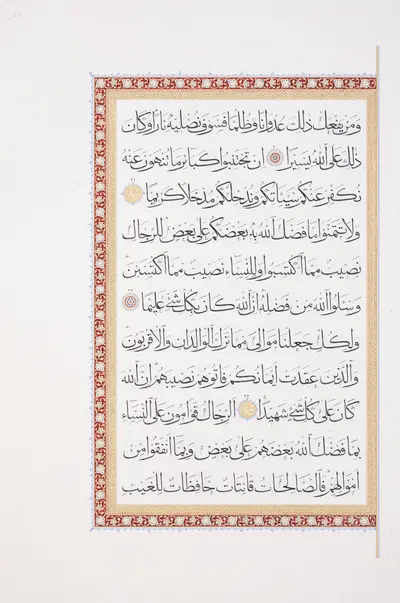 ومن يفعل ذلك عدوانا وظلما فسوف نصليه نارا وكان
ذلك على الله يسيرا ان تجتنبوا كبائر ما تنهون عنه
نكفر عنكم سيئاتكم وندخلكم مدخلا كريما
ولا تتمنوا ما فضل الله به بعضكم على بعض للرجال
نصيب مما اكتسبوا وللنساء نصيب مما اكتسبن
وسئلوا الله من فضله ان الله كان بكل شئ عليما
ولكل جعلنا موالى مما ترك الوالدان والاقربون
والذين عقدت ايمانكم فاتوهم نصيبهم ان الله
كان على كل شئ شهيدا الرجال قوامون على النساء
بما فضل الله بعضهم على بعض وبما انفقوا من
اموالهم فالصالحات قانتات حافظات للغيب